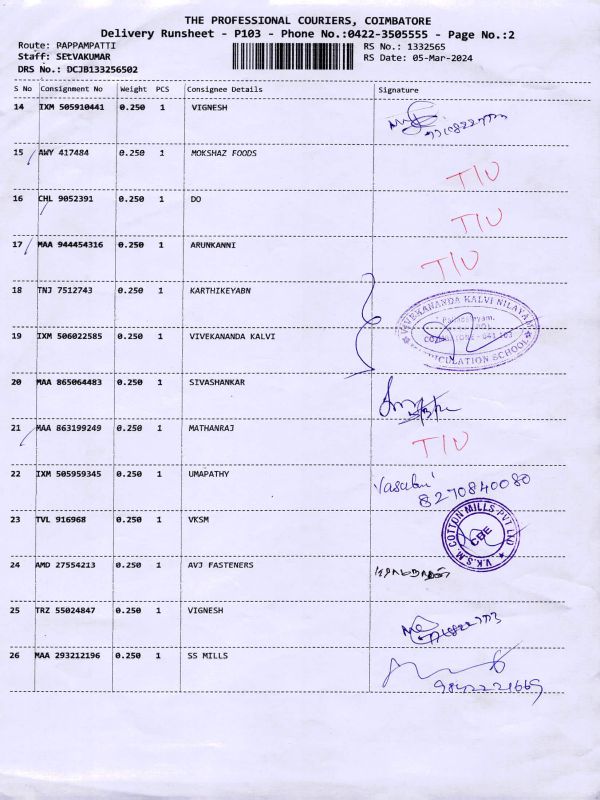 THE PROFESSIONAL COURIERS, COIMBATORE
Delivery Runsheet - P103 - Phone No.:0422-3505555 - Page No.:2
Route: PAPPAMPATTI
RS No.: 1332565
Staff: SELVAKUMAR
RS Date: 05-Mar-2024
DRS No.: DCJB133256502
S No Consignment No Weight PCS Consignee Details Signature
14 IXM 505910441 0.250 1 VIGNESH
15 AWY 417484 0.250 1 MOKSHAZ FOODS T/U
16 CHL 9052391 0.250 1 DO T/U
17 MAA 944454316 0.250 1 ARUNKANNI T/U
18 TNJ 7512743 0.250 1 KARTHIKEYABN
VIVEKANANDA KALVI NILAYAM
MATRICULATION SCHOOL
19 IXM 506022585 0.250 1 VIVEKANANDA KALVI
20 MAA 865064483 0.250 1 SIVASHANKAR
21 MAA 863199249 0.250 1 MATHANRAJ T/U
22 IXM 505959345 0.250 1 UMAPATHY
8270840080
23 TVL 916968 0.250 1 VKSM
V.K.S.M. COTTON MILLS PVT LTD
CBE
24 AMD 27554213 0.250 1 AVJ FASTENERS
25 TRZ 55024847 0.250 1 VIGNESH
26 MAA 293212196 0.250 1 SS MILLS
9842221669